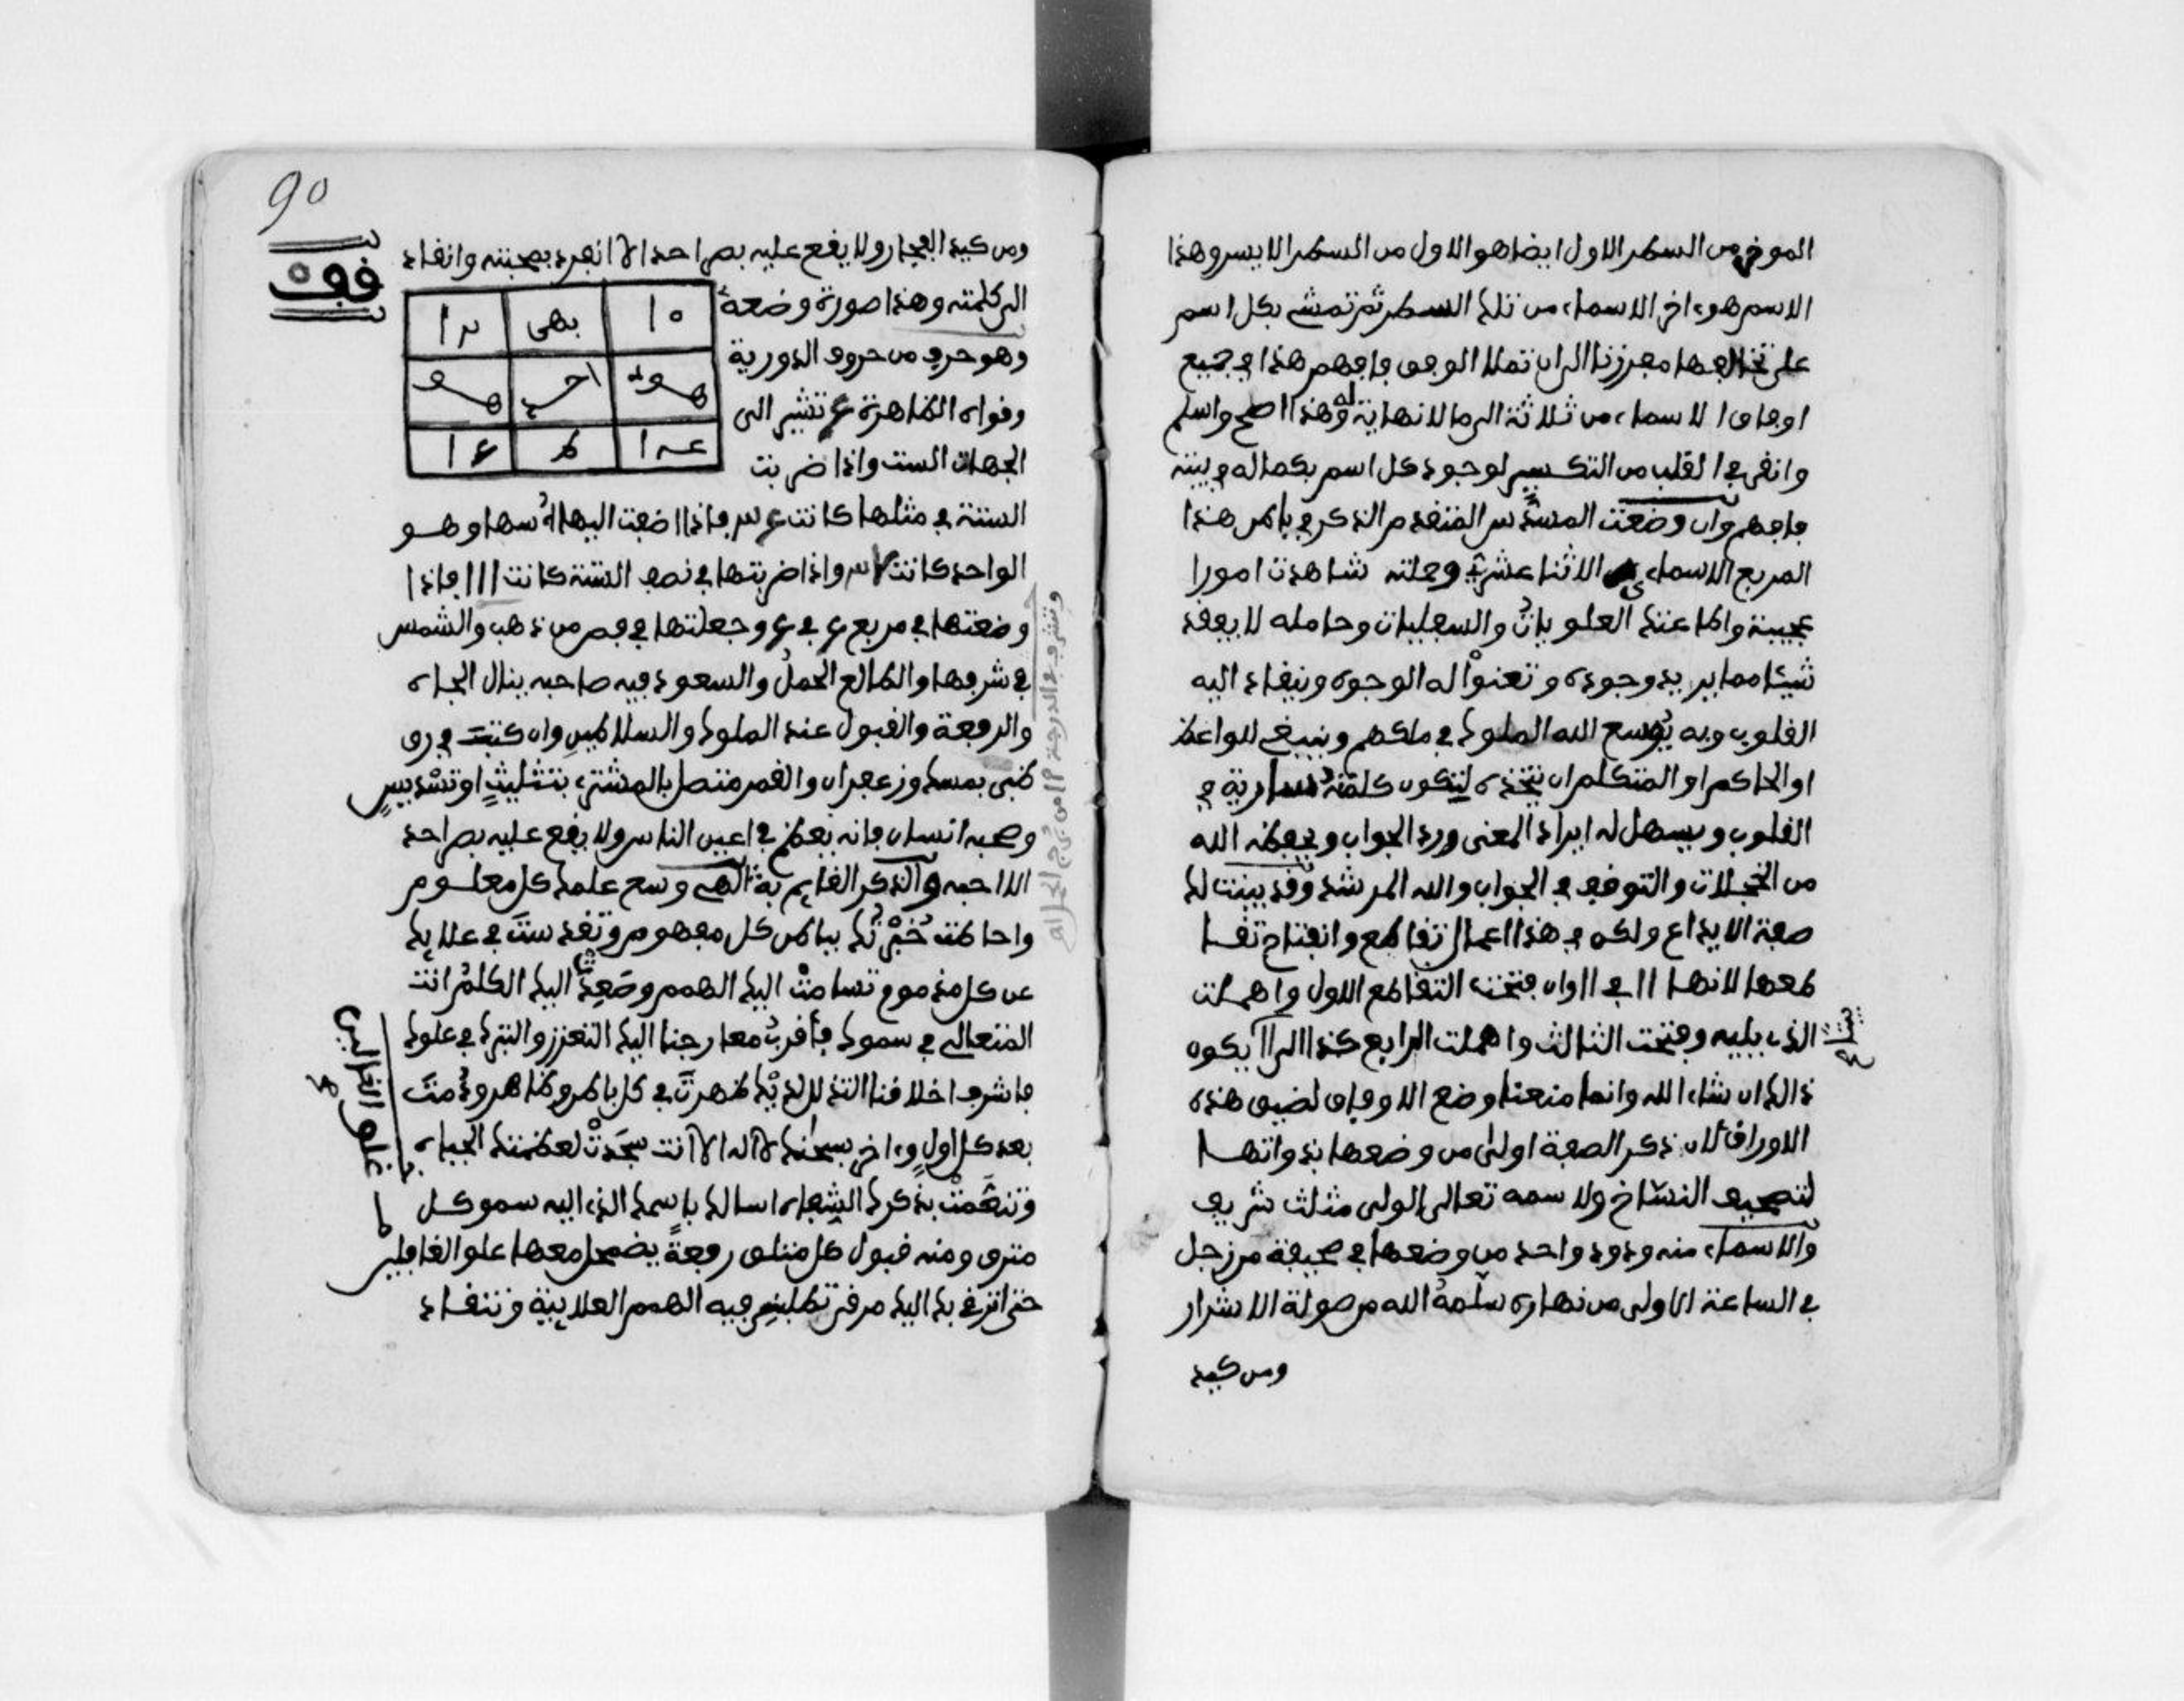 الموخر من السطر الاول ايضا هو الاول من السطر الايسر وهذا
الاسم هو ءاخر الاسماء من تلك السطر ثم تمشى بكل اسم
على تخالفها معززنا الى ان تملا الوفق فافهم هذا في جميع
اوفاق الاسماء من ثلاثة الى ما لا نهاية له وهذا اصح واسلم
وانقى في القلب من التكسير لوجود كل اسم بكماله في بيته
فافهم وان وضعت المسدس المتقدم الذكر في باطن هذا
المربع الاسماء الاثنا عشر وحملته شاهدت امورا
عجيبة واطاعتك العلويات والسفليات وحامله لا يفقد
شيئا مما يريد وجوده وتعنوا له الوجوه وينقاد اليه
القلوب وبه يوسع الله الملوك في ملكهم وينبغي للواعظ
او الحاكم او المتكلم ان يتخذه لتكون كلمته سارية في
القلوب ويسهل له ايراد المعنى ورد الجواب ويحفظه الله
من الخجلات والتوقف في الجواب والله المرشد وقد بينت لك
صفة الايداع ولكن في هذا اعمال تقاطع وانفتاح تقا
طعها لانها ١١ في ١١ وان فتحت التقاطع الاول واهملت
الذي يليه وفتحت الثالث واهملت الرابع كذا الى ١١ يكون
ذالك ان شاء الله وانما منعنا وضع الاوفاق لضيق هذه
الاوراق لان ذكر الصفة اولى من وضعها بذواتها
لتصحيف النساخ ولاسمه تعالى الولى مثلث شريف
والاسماء منه ودود واحد من وضعها في صحيفة من زحل
في الساعة الاولى من نهاره سلمه الله من صولة الاشرار
ومن كيد
90
ومن كيد الفجار ولا يقع عليه بصر احد الا انفرد بمحبته وانقاد
الى كلمته وهذا صورة وضعه
فقف
١٥ بهى يرا
وهو حرف من حروف الدورية
وقواه الظاهرة ع تشير الى
الجهات الست واذا ضربت
الستة في مثلها كانت فاذا اضفت اليها اسها وهو
الواحد كانت واذا ضربتها في نصف الستة كانت ١١١ فاذا
وضعتها في مربع ع في ع وجعلتها في فص من ذهب والشمس
في شرفها والطالع الحمل والسعود فيه صاحبه ينال الجاه
والرفعة والقبول عند الملوك والسلاطين وان كتبت في رق
ظبى بمسك وزعفران والقمر متصل بالمشترى بتثليث او تسديس
وصحبه انسان فانه يعظم في اعين الناس ولا يقع عليه بصر احد
الا احبه والذكر القايم به الهى وسع علمك كل معلوم
واحاطت خبرتك بباطن كل مفهوم وتقدست في علايك
عن كل مذموم تسامت اليك الهمم وصعد اليك الكلم انت
المتعالى في سموك فاقرب معارجنا اليك التعزز والتنزه في علوك
فاشرف اخلاقنا التذلل لديك ظهرت في كل باطن وظاهر ودمت
بعد كل اول وءاخر سبحنك لا اله الا انت سجدت لعظمتك الجباه
وتنعمت بذكرك الشفاه اسالك باسمك الذى اليه سمو كل
مترق ومنه قبول كل متلق رفعة يضمحل معها علو الغافلين
حتى اترقى بك اليك مرقى تطلبنى فيه الهمم العلاينية وتنقاد
وتشرف في الدرجة من برج الحمل اه
علو الغالين